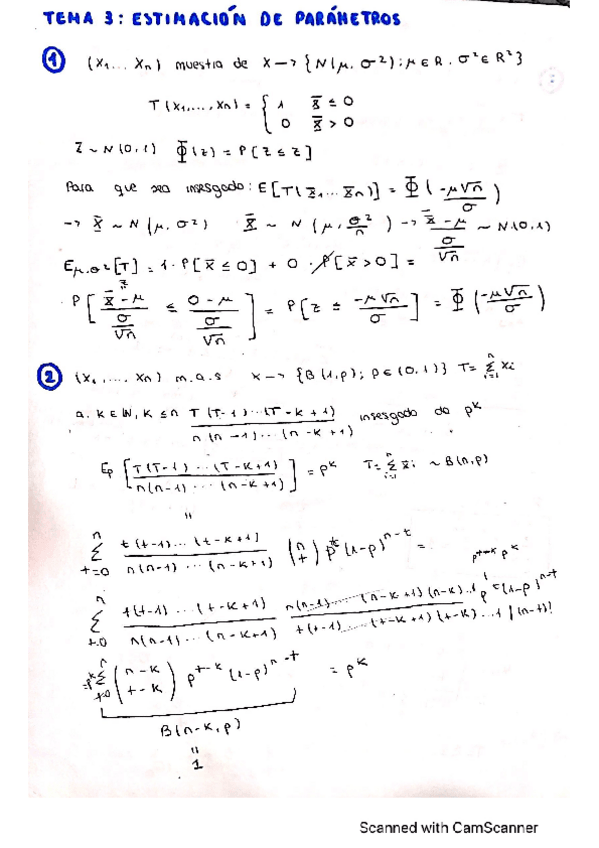 TEMA 3: ESTIMACIÓN DE PARÁMETROS
① (X1... Xn) muestra de X → {N(μ, σ²); μ ∈ R, σ² ∈ R²}
T(X1,..., Xn) = { 1 x̄ ≤ 0
0 x̄ > 0
Z ~ N(0,1) Φ(z) = P[Z ≤ z]
Para que sea insesgado: E[T(X1... Xn)] = Φ(-μ√n / σ)
→ X̄ ~ N(μ, σ²) X̄ ~ N(μ, σ²/n) → (X̄ - μ)/(σ/√n) ~ N(0,1)
Eμ,σ²[T] = 1· P[x̄ ≤ 0] + 0 · P[x̄ > 0] =
P[(x̄ - μ)/(σ/√n) ≤ (0 - μ)/(σ/√n)] = P[Z ≤ -μ√n/σ] = Φ(-μ√n/σ)
② (X1,..., Xn) m.a.s X → {B(1,p); p ∈ (0,1)} T = Σ_{i=1}^{n} Xi
a. K ∈ N, K ≤ n T(T-1)...(T-K+1) / n(n-1)...(n-K+1) insesgado de p^K
Ep[T(T-1)...(T-K+1) / n(n-1)...(n-K+1)] = p^K T = Σ_{i=1}^{n} Xi ~ B(n,p)
"
Σ_{t=0}^{n} t(t-1)...(t-K+1) / n(n-1)...(n-K+1) (n t) p^t (1-p)^{n-t} =
p^{t-K} p^K
Σ_{t=0}^{n} t(t-1)...(t-K+1) / n(n-1)...(n-K+1) n(n-1)...(n-K+1)(n-K)...1 / t(t-1)...(t-K+1)(t-K)...1 (n-t)! p^t (1-p)^{n-t}
= p^K Σ_{t=0}^{n} (n-K t-K) p^{t-K} (1-p)^{n-t} = p^K
B(n-K, p)
"
1
Scanned with CamScanner